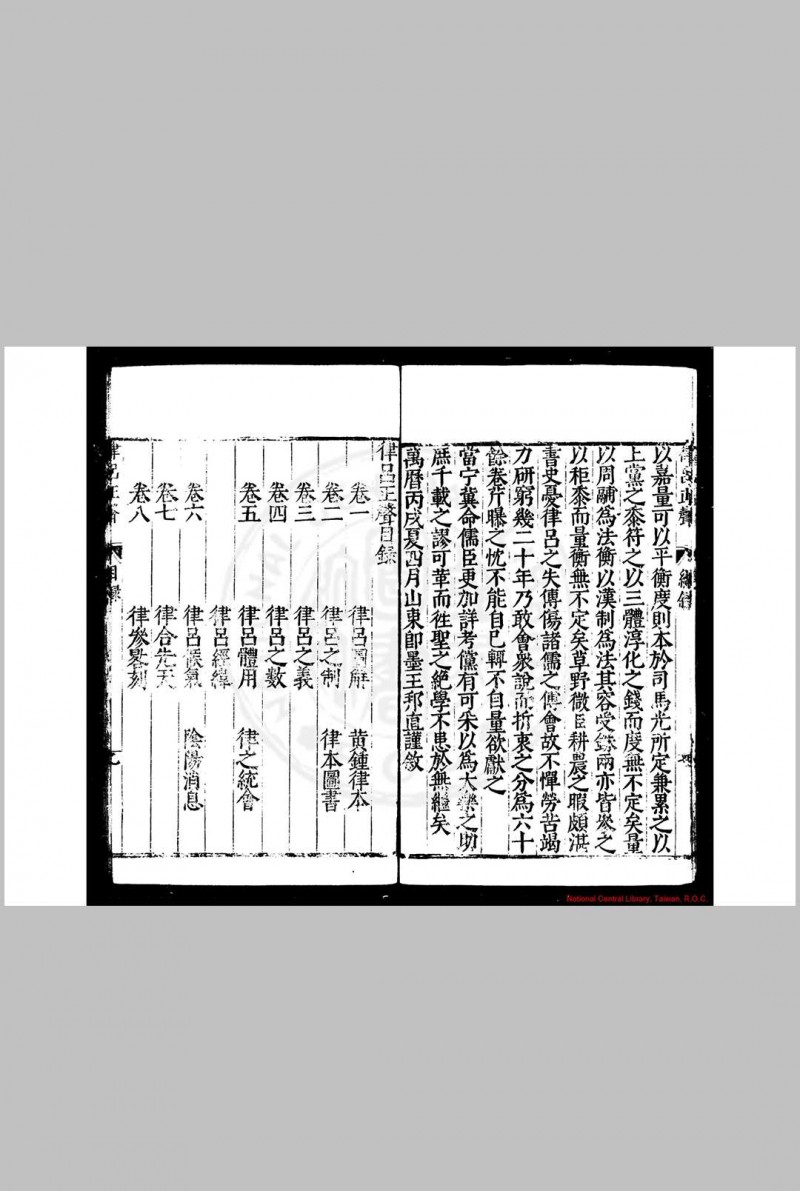 以嘉量可以平衡度則本於司馬光所定兼累之以
上黨之黍符之以三體淳化之錢而度無不定矣量
以周鬴為法衡以漢制為法其容受銖兩亦皆參之
以秬黍而量衡無不定矣草野微臣耕農之暇頗湛
書史憂律呂之失傳傷諸儒之傅會故不憚勞苦竭
力研窮幾二十年乃敢會衆說而折衷之分為六十
餘卷芹曝之忱不能自已輒不自量欲獻之
當宁冀命儒臣更加詳考儻有可采以為大樂之助
庶千載之謬可革而徃聖之絕學不患於無繼矣
萬曆丙戌夏四月山東即墨王邦直謹敘
律呂正聲目錄
卷一 律呂圖解 黃鍾律本
卷二 律呂之制 律本圖書
卷三 律呂之義
卷四 律呂之數
卷五 律呂體用 律之統會
律呂經緯
卷六 律呂候氣 陰陽消息
卷七 律合先天
卷八 律參晷刻
律呂正聲 目錄
National Central Library, Taiwan, R.O.C.